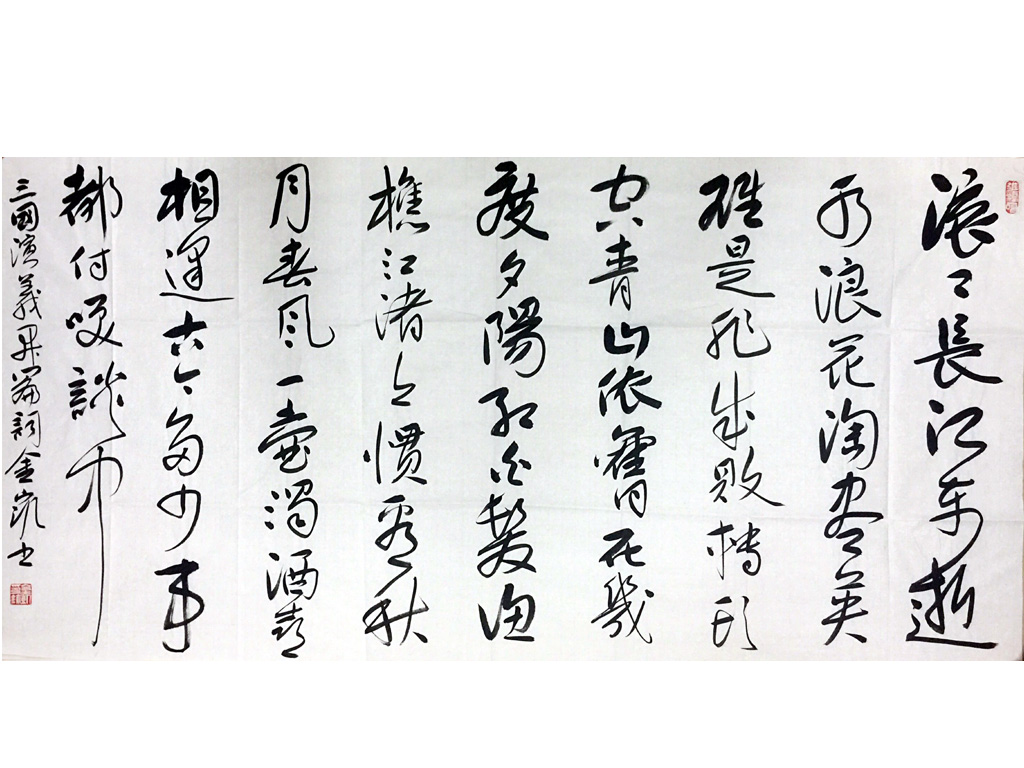 滚〻長江东逝
水浪花淘尽英
雄是非成败转頭
空青山依舊在幾
度夕陽红白髮渔
樵江渚上惯看秋
月春风一壶濁酒喜
相逢古今多少事
都付笑談中
三國演義開篇詞金凯书